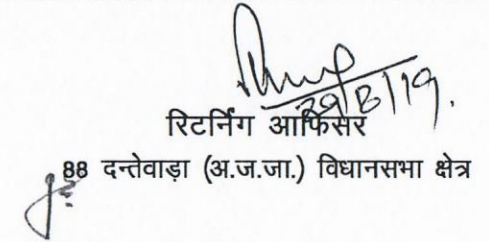 29/8/19.
रिटर्निंग आफिसर
88 दन्तेवाड़ा (अ.ज.जा.) विधानसभा क्षेत्र